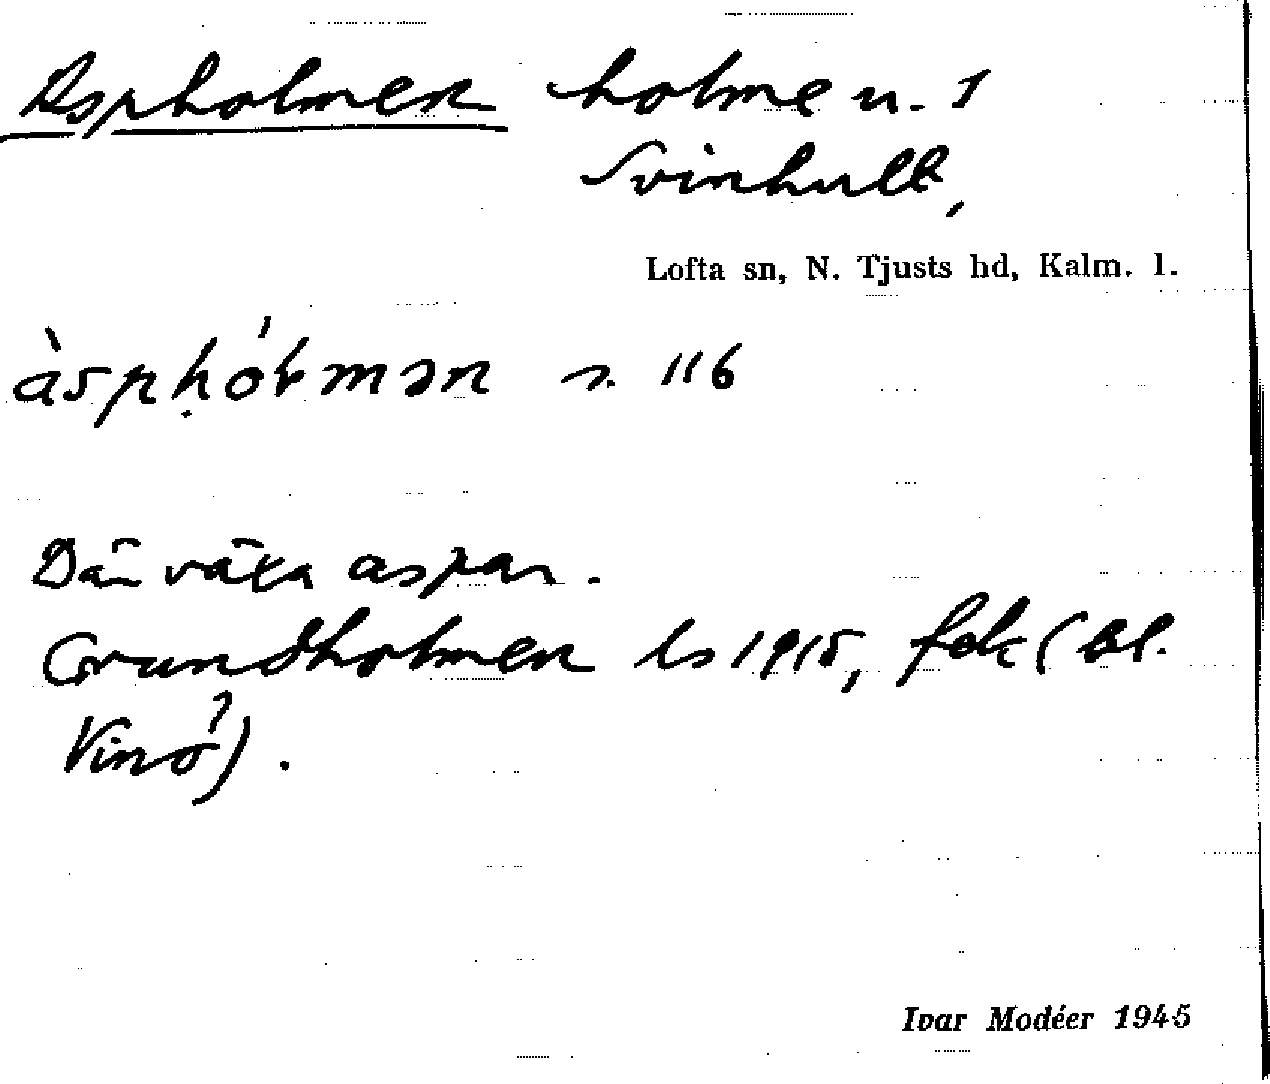 Aspholmen holme u. 1
Svinhult,
Lofta sn, N. Tjusts hd, Kalm. l.
àsphólmən s. 116
Där växa aspar.
Grundholmen ls 1915, fek (bl.
Vinö?).
Ivar Modéer 1945